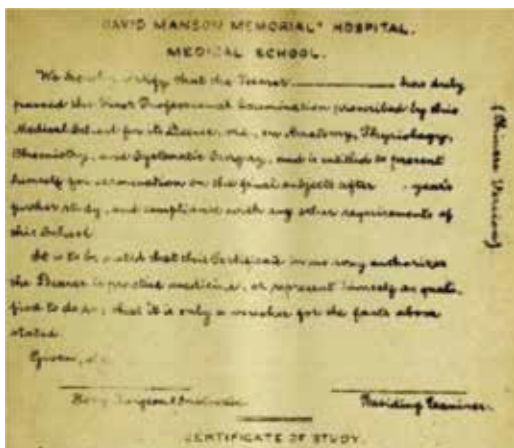 DAVID MANSON MEMORIAL" HOSPITAL.
MEDICAL SCHOOL.
We hereby certify that the Bearer has duly
passed the First Professional Examination prescribed by this
Medical School for its Licence, viz., on Anatomy, Physiology,
Chemistry, and Systematic Surgery, and is entitled to present
himself for examination on the final subjects after year's
further study, and compliance with any other requirements of
this School.
It is to be noted that this Certificate in no way authorizes
the Bearer to practise medicine, or represent himself as quali-
fied to do so; that it is only a voucher for the facts above
stated.
Given,
Surgeon
Presiding Examiner.
CERTIFICATE OF STUDY.
(Chinese Version)